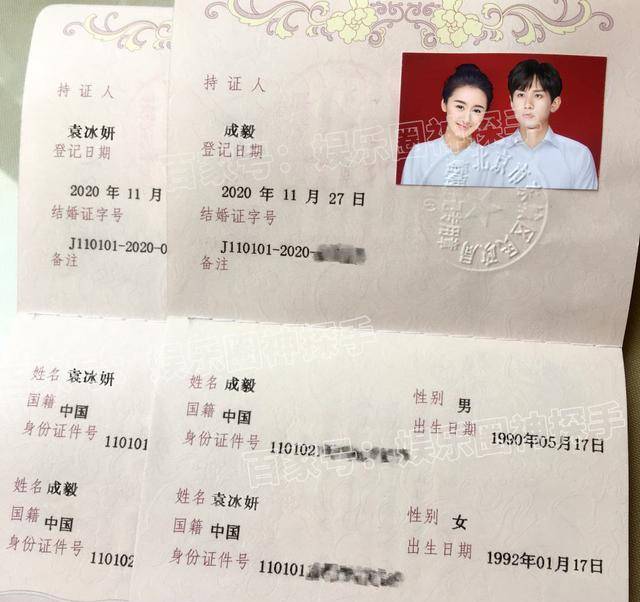 持证人
袁冰妍
登记日期
2020 年 11 月
结婚证字号
J110101-2020-0
备注
持证人
成毅
登记日期
2020 年 11 月 27 日
结婚证字号
J110101-2020-
备注
姓名 袁冰妍
国籍 中国
身份证件号 110101
姓名 成毅
国籍 中国
身份证件号 110102
姓名 成毅
性别 男
国籍 中国
出生日期 1990年05月17日
身份证件号 1101021
姓名 袁冰妍
性别 女
国籍 中国
出生日期 1992年01月17日
身份证件号 110101
百家号：娱乐圈神探手
娱乐圈神探手
百家号：娱乐圈神探手